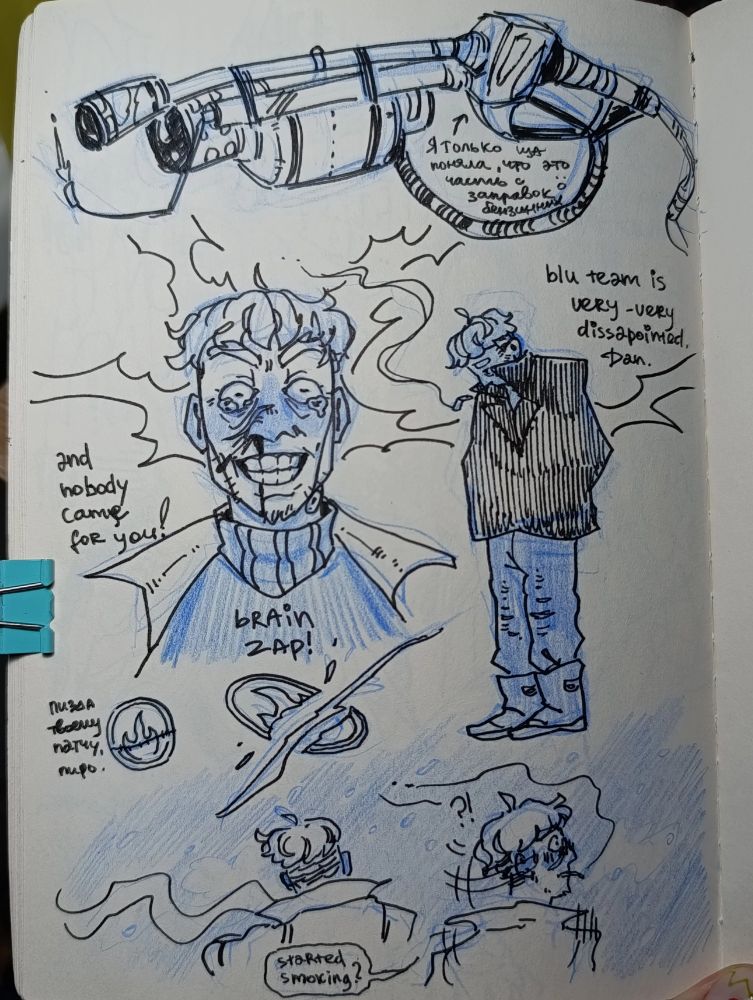 Я только ща
поняла, что это
часть с
заправок
бензинных
blu team is
very-very
dissapointed,
Dan.
and
nobody
came
for you!
brain
zap!
пизда
твоему
патчу,
пиро.
?!
started
smoking?